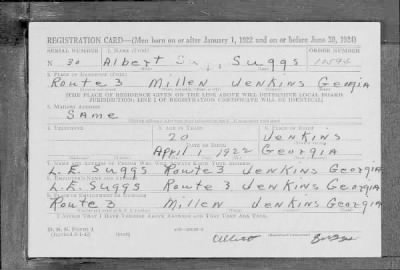 REGISTRATION CARD—(Men born on or after January 1, 1922 and on or before June 30, 1924)
SERIAL NUMBER 1. NAME (Print) ORDER NUMBER
N 30 Albert Suggs 10594
2. PLACE OF RESIDENCE (Print)
Route 3 Millen Jenkins Georgia
[THE PLACE OF RESIDENCE GIVEN ON THE LINE ABOVE WILL DETERMINE LOCAL BOARD
JURISDICTION; LINE 2 OF REGISTRATION CERTIFICATE WILL BE IDENTICAL]
3. MAILING ADDRESS
Same
4. TELEPHONE 5. AGE IN YEARS 6. PLACE OF BIRTH
20 Jenkins
DATE OF BIRTH
April 1 1922 Georgia
7. NAME AND ADDRESS OF PERSON WHO WILL ALWAYS KNOW YOUR ADDRESS
L. E. Suggs Route 3 Jenkins Georgia
8. EMPLOYER'S NAME AND ADDRESS
L. E. Suggs Route 3 Jenkins Georgia
9. PLACE OF EMPLOYMENT OR BUSINESS
Route 3 Millen Jenkins Georgia
I AFFIRM THAT I HAVE VERIFIED ABOVE ANSWERS AND THAT THEY ARE TRUE.
D. S. S. Form 1
Suggs